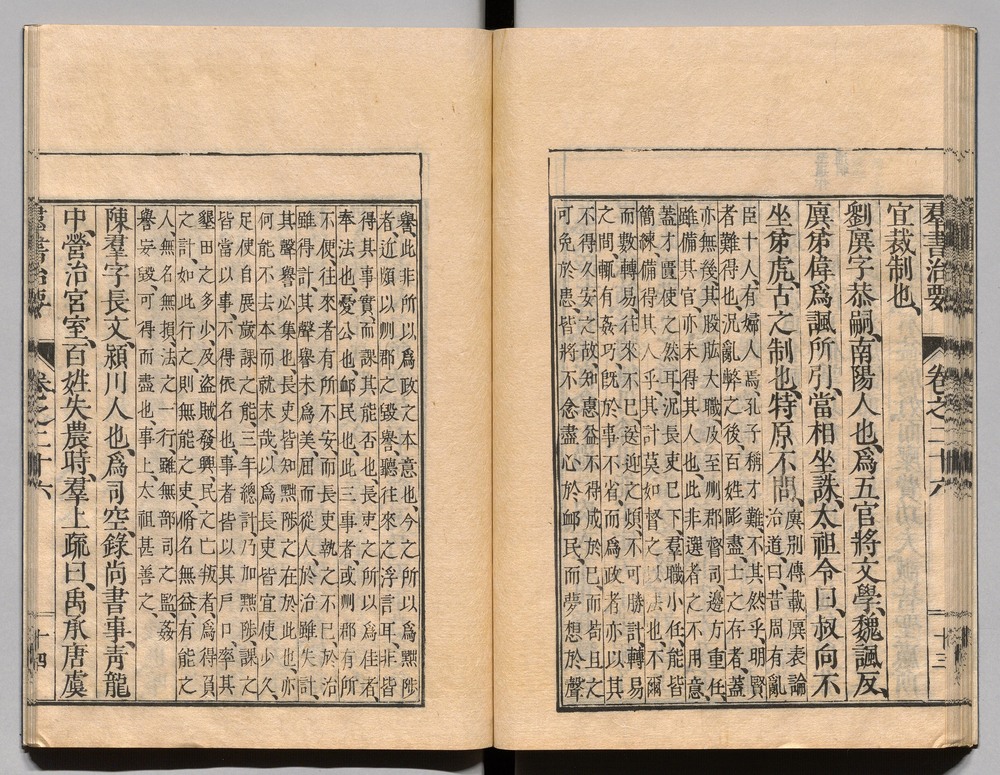 羣書治要 卷之二十六 十三
宜裁制也、
劉廙字恭嗣、南陽人也、爲五官將文學、魏諷反、
廙弟偉爲諷所引、當相坐誅、太祖令曰、叔向不
坐弟虎、古之制也、特原不問、
廙別傳載廙表論
治道曰、昔周有亂
臣十人、有婦人焉、孔子稱才難、不其然乎、明賢
者難得也、况亂弊之後、百姓彫盡、士之存者、蓋
亦無幾、其股肱大職、及至州郡督司、邊方重任、
雖備其官、亦未得其人也、此非選者之不用意、
蓋才匱使之然耳、况長吏已下、羣職小任、能皆
簡練備得其人乎、其計莫如督之以法也、不爾
而數轉易、往來不已、送迎之煩、不可勝計、轉易
之間、輒有姦巧、既於其事不省、而爲政者亦以其
不得久安之故、知惠益不得成於已、而苟且之
可免於患、皆將不念盡心於卹民、而夢想於聲
譽、此非所以爲政之本意也、今之所以爲黜陟
者、近頗以州郡之毀譽、聽往來之浮言耳、非皆
得其事實、而課其能否也、長吏之所以爲佳者、
奉法也、憂公也、卹民也、此三事者、或州郡有所
不便、往來者有所不安、而長吏執之不已、於治
雖得計、其聲譽未爲美、屈而從人、於治雖失計、
其聲譽必集也、長吏皆知黜陟之在於此也、亦
何能不去本而就末哉、以爲長吏皆宜使少久、
足使自展、歲課之能、三年總計、乃加黜陟、課之
皆當以事、不得依名也、事者皆以其戶口、率其
墾田之多少、及盜賊發興、民之亡叛者、爲得負
之計、如此行之、則無能之吏、脩名無益、有能之
人、無名無損、法之一行、雖無部司之監、姦
譽妄毀、可得而盡也、事上、太祖甚善之、
陳羣字長文、潁川人也、爲司空、錄尚書事、青龍
中、營治宮室、百姓失農時、羣上疏曰、禹承唐虞
羣書治要 卷之二十六 十四